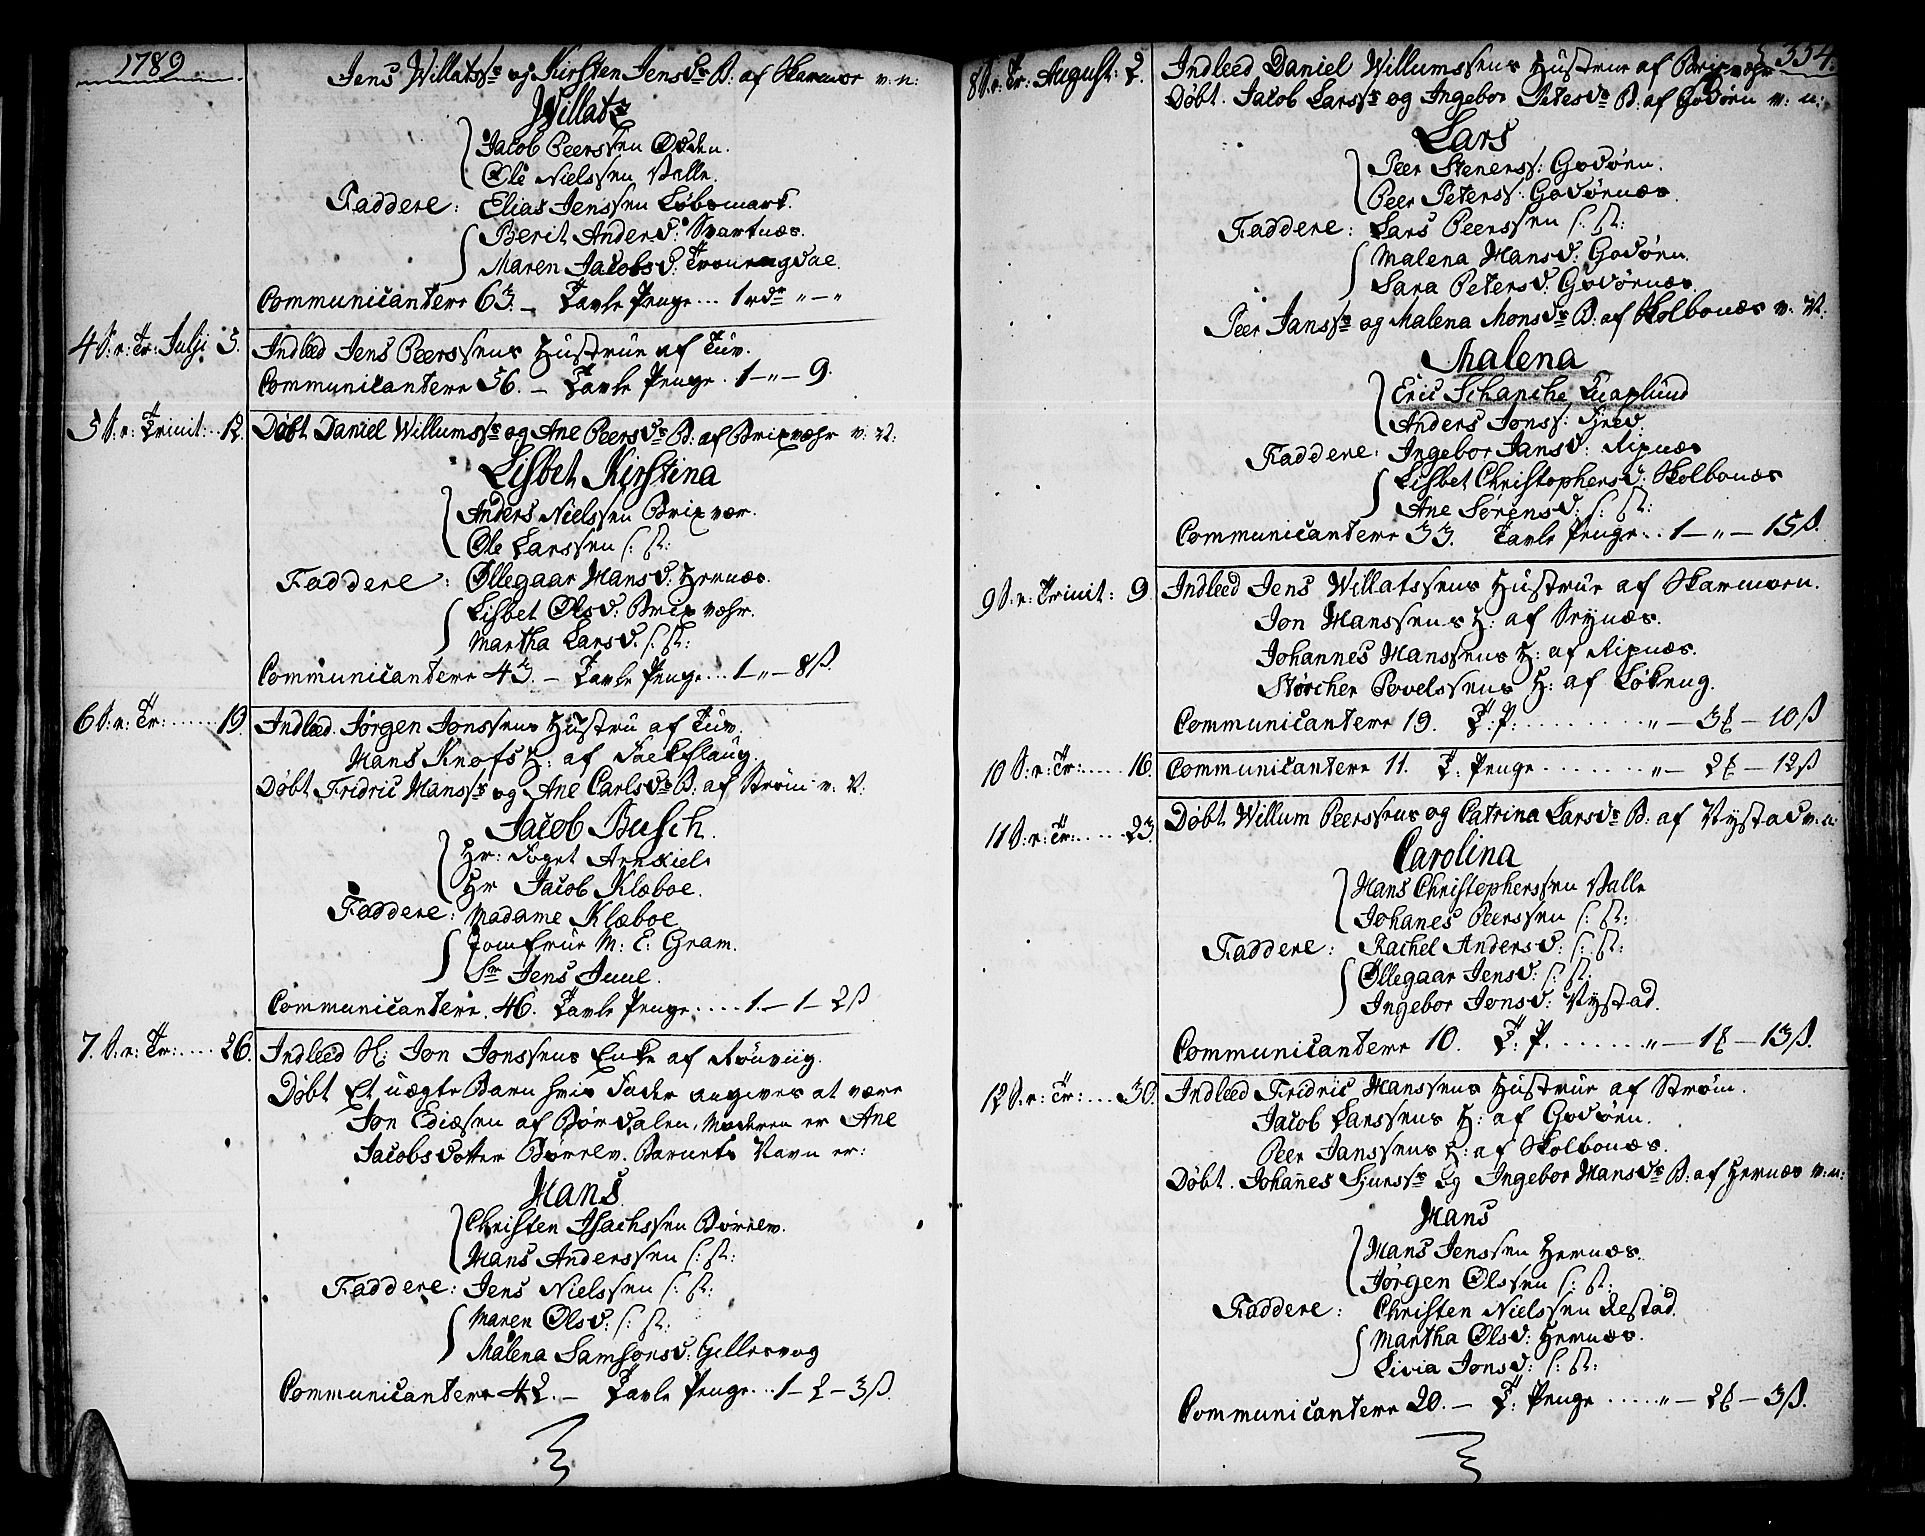 1789
Jens Willatss: og Kirsten Jensd: B: af Skarmoe v: n:
Willats
Jacob Peerssen Osden.
Ole Nielssen Valle.
Faddere: Elias Jenssen Løbsmark.
Berit Andersd: Svartnæs.
Maren Jacobsd:
Communicantere 63. – Tavle Penge ... 1 rdr „ – „
4 S. e: Tr: Julji 5. Indleed Jens Peerssens Hustrue af Tuv.
Communicantere 56. – Tavle Penge . 1 – „ – 9.
5 S: e: Trinit: .. 12. Døbt Daniel Willumss: og Ane Peersd: B: af Brixvæhr v: N:
Lisbet Kirstina
Anders Nielssen Brixvær.
Ole Larssen s: st:
Faddere: Øllegaar Hansd: Hernæs.
Lisbet Olsd: Brixvæhr.
Martha Larsd: s: st:
Communicantere 43. – Tavle Penge ... 1 – „ – 8 ß
6 S: e: Tr: ...... 19. Indleed. Jørgen Jonssens Hustru af Tuv.
Hans Knofs H: af
Døbt Fridric Hanss: og Ane Carlsd: B: af Strøm v: N:
Jacob Busch.
Hr: Foget Arnkiel
Hr Jacob Klæboe.
Faddere: Madame Klæboe
Jomfrue M: E: Gram.
Sr Jens Juul.
Communicantere. 46. Tavle Penge ..... 1. – 1 – 2 ß
7. S: e: Tr: .... 26. Indleed S: Jon Jonssens Enke af
Døbt Et uægte Barn hvis Fader angives at være
Jon Ediæsen af Børdalen, Moderen er Ane
Jacobsdotter Børrelv. Barnets Navn er:
Hans
Christen Isachssen Børrelv.
Hans Anderssen s: st:
Faddere: Jens Nielssen s: st:
Maren Olsd: s: st:
Malena Samsonsd: Gillesvog
Communicantere 42. – Tavle Penge ... 1 – 2 – 3 ß.
354.
8 S. e: Tr: August: 2. Indleed Daniel Willumssens Hustrue af Brixvæhr
Døbt. Jacob Larss: og Ingebor Petersd: B: af Godøen v: n:
Lars
Peer Stenerss: Godøen.
Peer Peterss: Godøenæs.
Faddere: Lars Peerssen s: st:
Malena Hansd: Godøen.
Sara Petersd: Godøenæs.
Peer Janss: og Malena Monsd: B: af Skolbonæs v: N:
Malena
Eric Schanche
Anders Jonss:
Faddere: Ingebor Jansd: Ripnæs
Lisbet Christophersd: Skolbonæs
Ane Sørensd: s: st:
Communicantere 33. Tavle Penge .. 1 – „ – 15 ß.
9 S: e: Trinit: 9. Indleed Jens Willatssens Hustrue af Skarmoen.
Jon Hanssens H: af Seynæs.
Johannes Hanssens H: af Ripnæs.
Størcher Povelssens H: af Løkeng.
Communicantere 19. T: P. ......... „ – 3 ℔ – 10 ß
10 S: e: Tr: .... 16. Communicantere 11. T: Penge ....... „ – 2 ℔ – 12 ß
11 S: e: Tr: ..... 23. Døbt Willum Peerssens og Catrina Larsd: B: af Nystad v: n:
Carolina
Hans Christopherssen Valle
Johanes Peerssen s: st:
Faddere: Rachel Andersd: s: st:
Øllegaar Jensd: s: st:
Ingebor Jonsd: Nystad.
Communicantere 10. T: P. ....... „ – 1 ℔ – 13 ß.
12 S: e: Tr: ... 30. Indleed Fridric Hanssens Hustrue af Strøm.
Jacob Larssens H: af Godøen.
Peer Janssens H: af Skolbonæs.
Døbt. Johanes Sjurss: og Ingebor Hansd: B: af Hernæs v: n:
Hans
Hans Jenssen Hernæs.
Jørgen Olssen s: st:
Faddere: Christen Nielssen Restad.
Martha Olsd: Hernæs.
Livia Jonsd: s: st:
Communicantere 20. – T: Penge ..... „ – 2 ℔ – 3 ß.